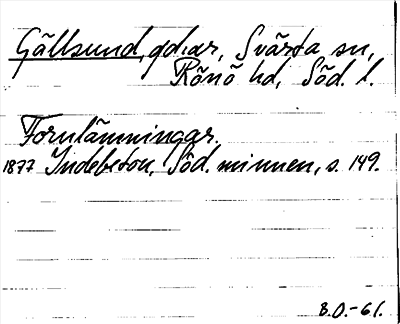 Gällsund, gdar, Svärta sn,
Rönö hd, Söd. l.
Fornlämningar.
1877 Indebetou, Söd. minnen, s. 149.
B.O.-61.